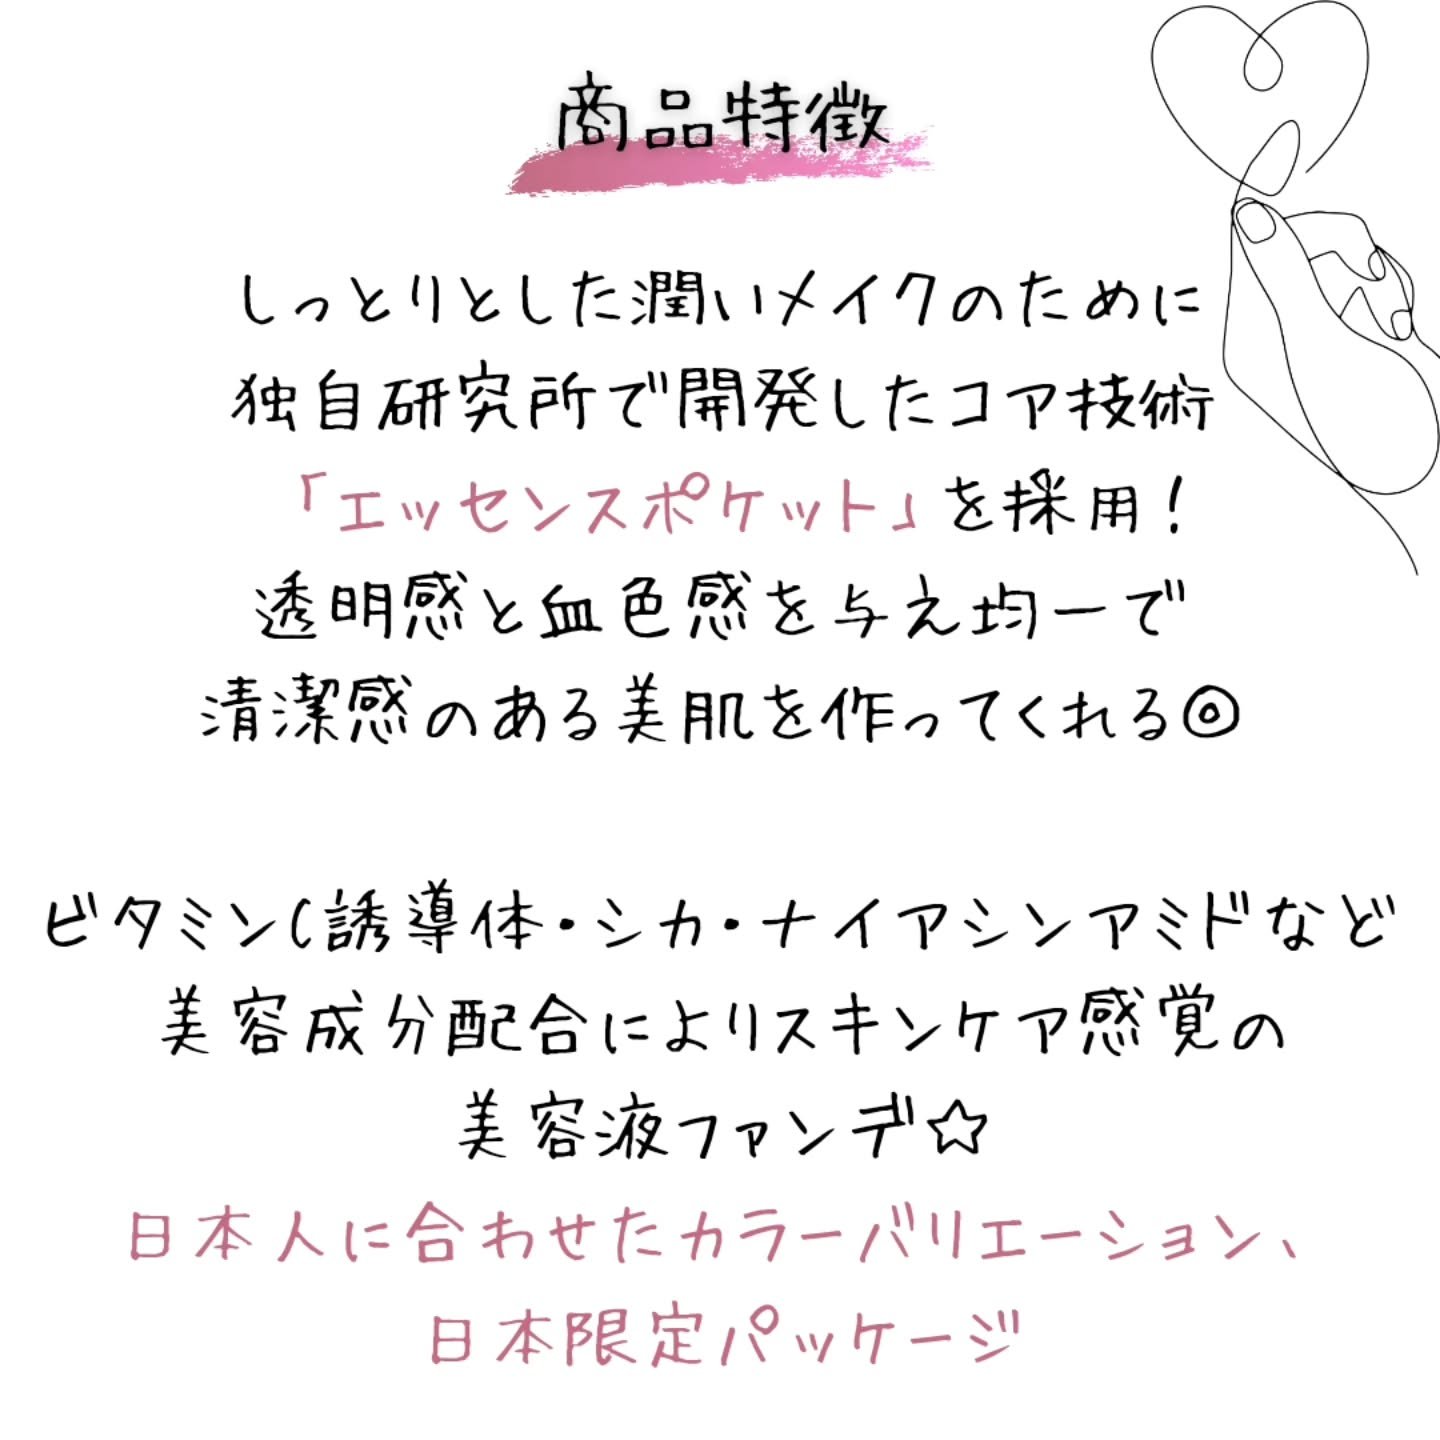 商品特徴
しっとりとした潤いメイクのために
独自研究所で開発したコア技術
「エッセンスポケット」を採用！
透明感と血色感を与え均一で
清潔感のある美肌を作ってくれる◎
ビタミンC誘導体・シカ・ナイアシンアミドなど
美容成分配合によりスキンケア感覚の
美容液ファンデ☆
日本人に合わせたカラーバリエーション、
日本限定パッケージ